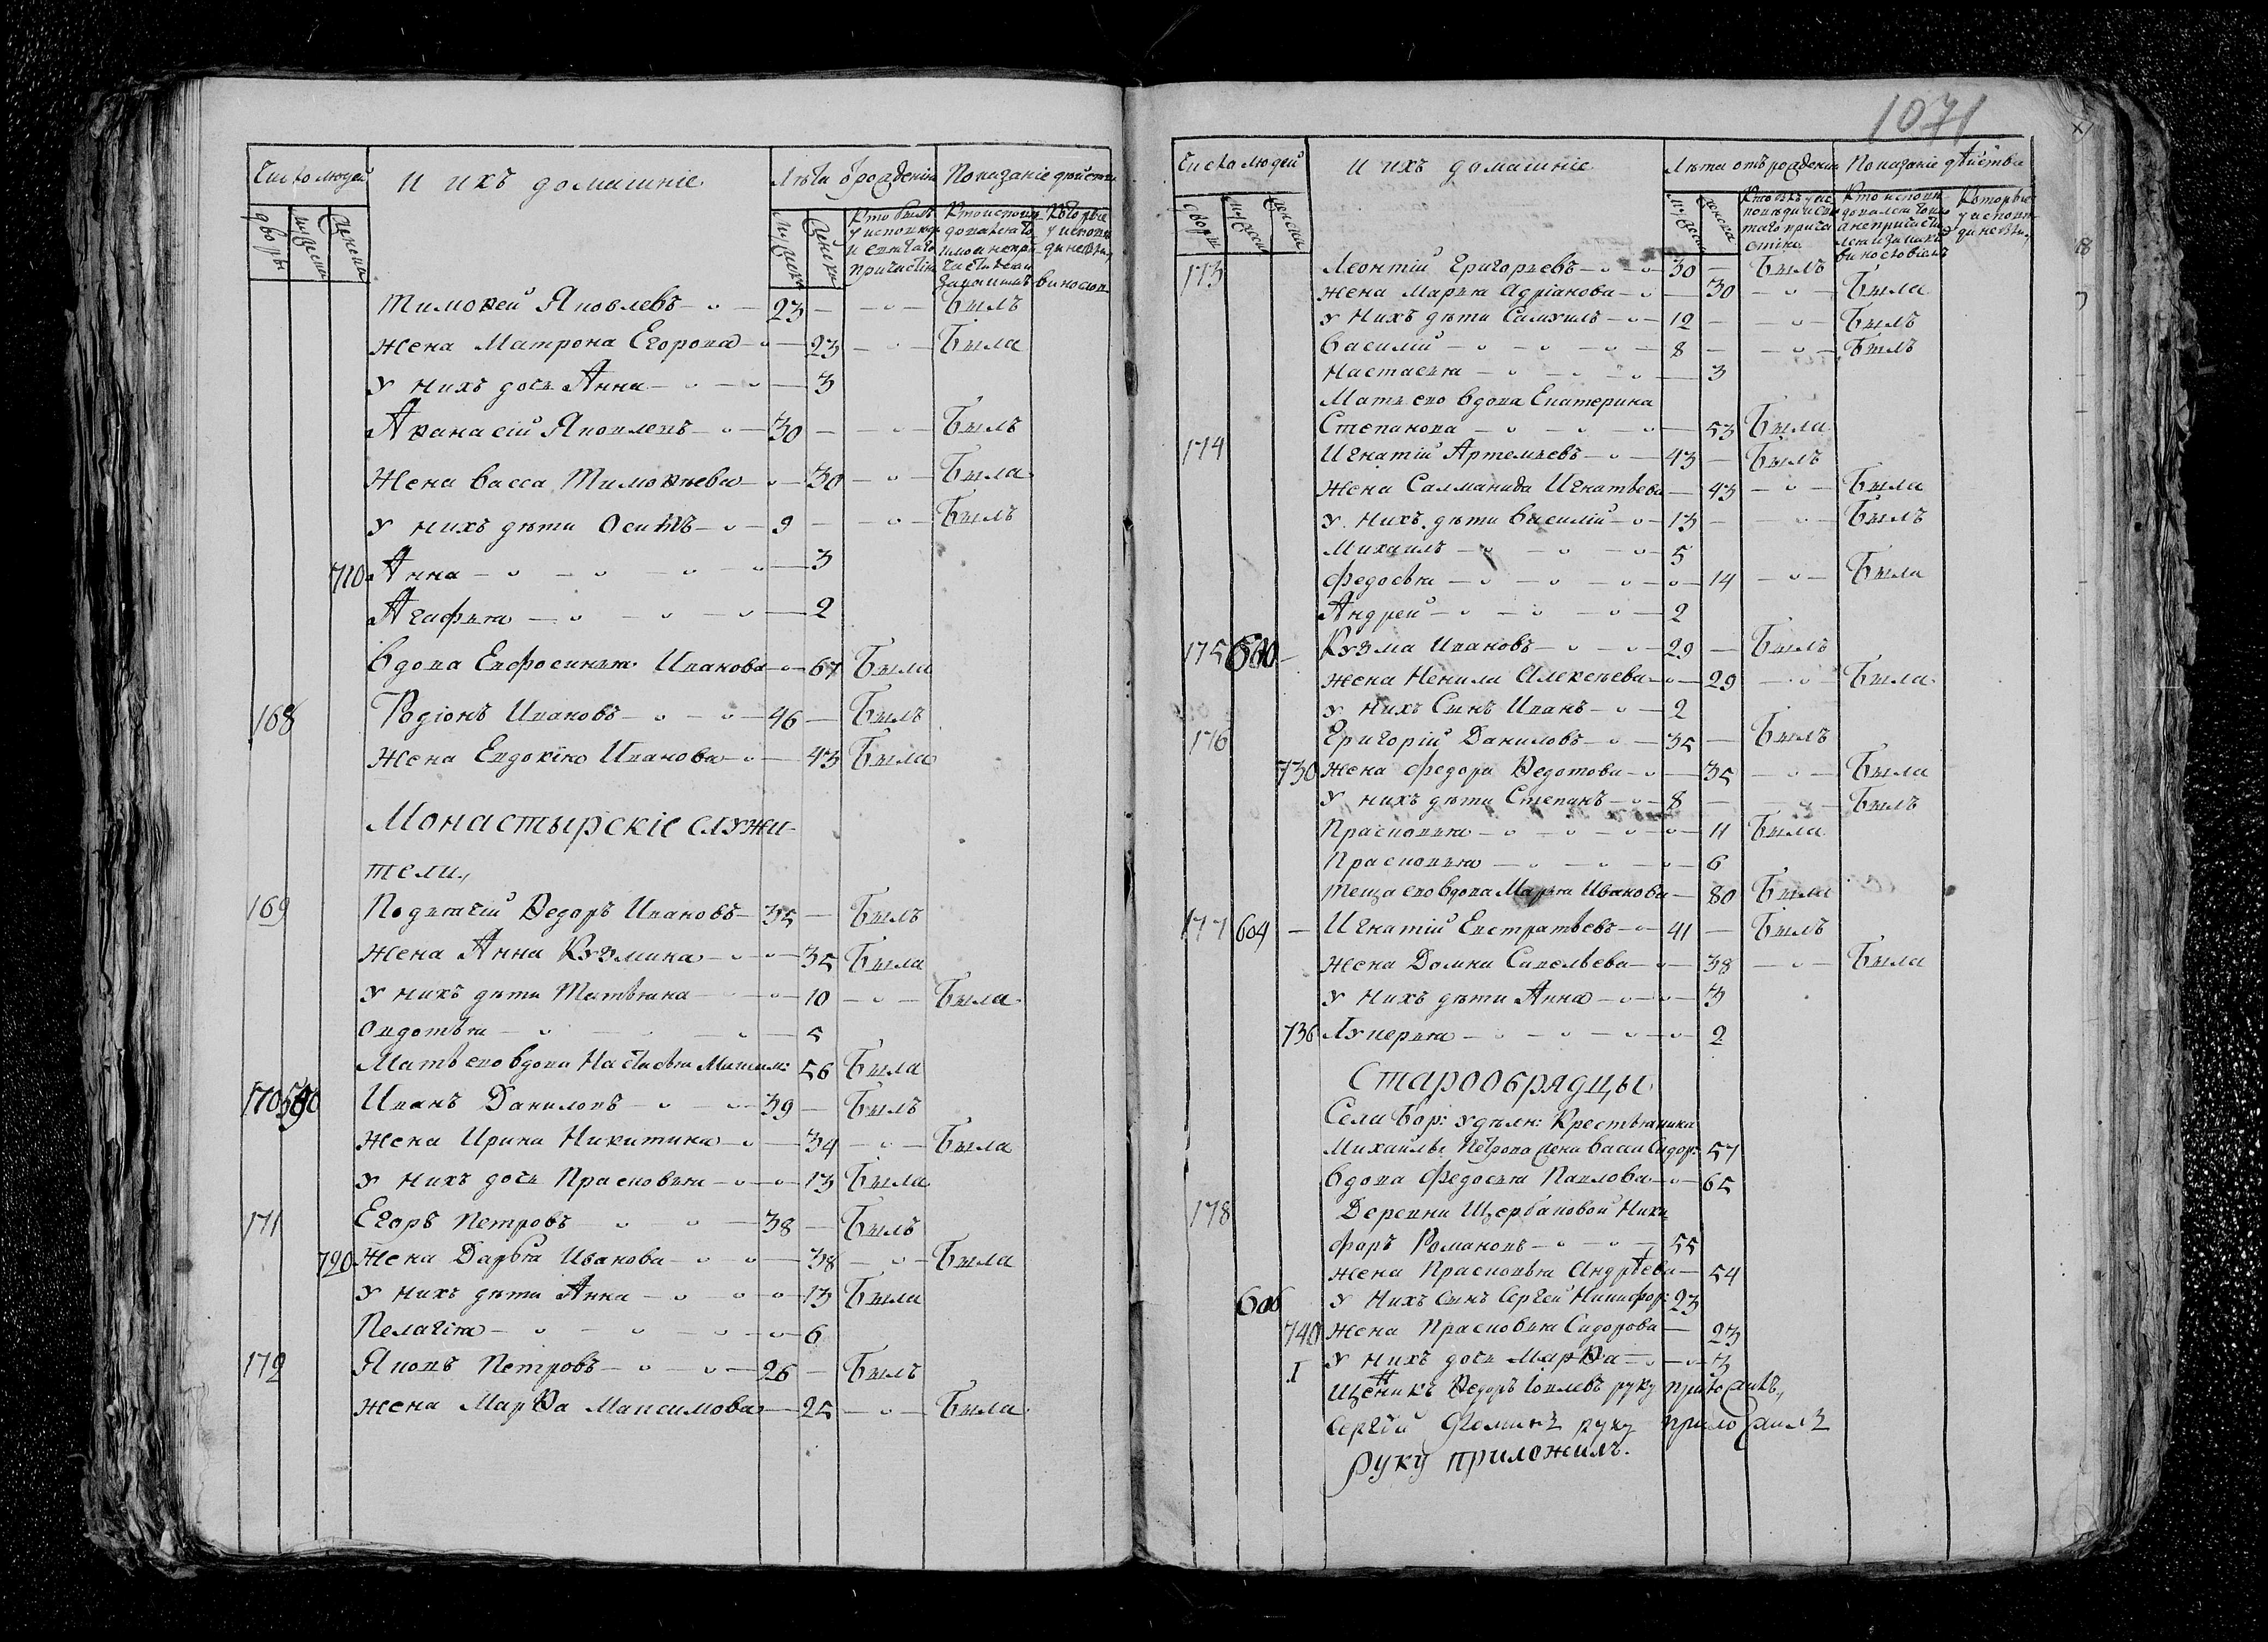 Число людей И ихъ домашніе Лѣта ѿ рожденія Показаніе дѣйства
дворы мужеска женска мужеска женска Кто былъ у исповѣди и святаго причастія Кто исповѣдовался токмо а не причастился и за какимъ винословіемъ Которые у исповѣди не были
Тимоѳей Яковлевъ 23 Былъ
Жена Матрона Егорова 23 Была
У нихъ дочь Анна 3
Аѳанасій Яковлевъ 30 Былъ
Жена Васса Тимоѳеева 30 Была
У нихъ дѣти Осипъ 9 Былъ
710 Анна 3
Агафья 2
Вдова Евфросинья Иванова 67 Была
168 Родіонъ Ивановъ 46 Былъ
Жена Евдокія Иванова 43 Была
Монастырскіе служи-
тели,
169 Подьячій Ѳедоръ Ивановъ 35 Былъ
Жена Анна Кузмина 35 Была
У нихъ дѣти Татьяна 10 Была
Овдотья 5
Мать его вдова Настасья Максим: 56 Была
170 590 Иванъ Даниловъ 39 Былъ
Жена Ирина Никитина 34 Была
У нихъ дочь Прасковья 13 Была
171 Егоръ Петровъ 38 Былъ
720 Жена Дарья Иванова 38 Была
У нихъ дѣти Анна 13 Была
Пелагія 6
172 Яковъ Петровъ 26 Былъ
Жена Марѳа Максимова 25 Была
1071
Число людей И ихъ домашніе Лѣта отъ рожденія Показаніе дѣйства
дворы мужеска женска мужеска женска Кто былъ у исповѣди и святаго причастія Кто исповѣдовался токмо а не причастился и за какимъ винословіемъ Которые у исповѣди не были
173 Леонтій Григорьевъ 30 Былъ
Жена Марья Адріанова 30 Была
У нихъ дѣти Самуилъ 12 Былъ
Василій 8 Былъ
Настасья 3
Мать его вдова Екатерина
Степанова 53 Была
174 Игнатій Артемьевъ 43 Былъ
Жена Салманида Игнатьева 43 Была
У нихъ дѣти Василій 13 Былъ
Михаилъ 5
Федосья 14 Была
Андрей 2
175 600 Кузма Ивановъ 29 Былъ
Жена Ненила Алексѣева 29 Была
У нихъ сынъ Иванъ 2
176 Григорій Даниловъ 35 Былъ
730 Жена Федора Ѳедотова 35 Была
У нихъ дѣти Степанъ 8 Былъ
Прасковья 11 Была
Прасковья 6
Теща его вдова Марья Иванова 80 Была
177 604 Игнатій Евстратьевъ 41 Былъ
Жена Домна Савельева 38 Была
У нихъ дѣти Анна 3
736 Лукерья 2
Старообрядцы
Села Бор: удѣлн: Крестьянина
Михаилы Петрова жена Васса Сидор: 57
Вдова Федосья Павлова 65
178 Деревни Щербаковой Ники-
форъ Романовъ 55
Жена Прасковья Андрѣева 54
606 У нихъ сынъ Сергей Никифор: 23
740 Жена Прасковья Сидорова 23
У нихъ дочь Марѳа 3
Щеникъ Ѳедоръ руку приложилъ,
Сергѣй Ѳоминъ руку приложилъ
руку приложилъ.